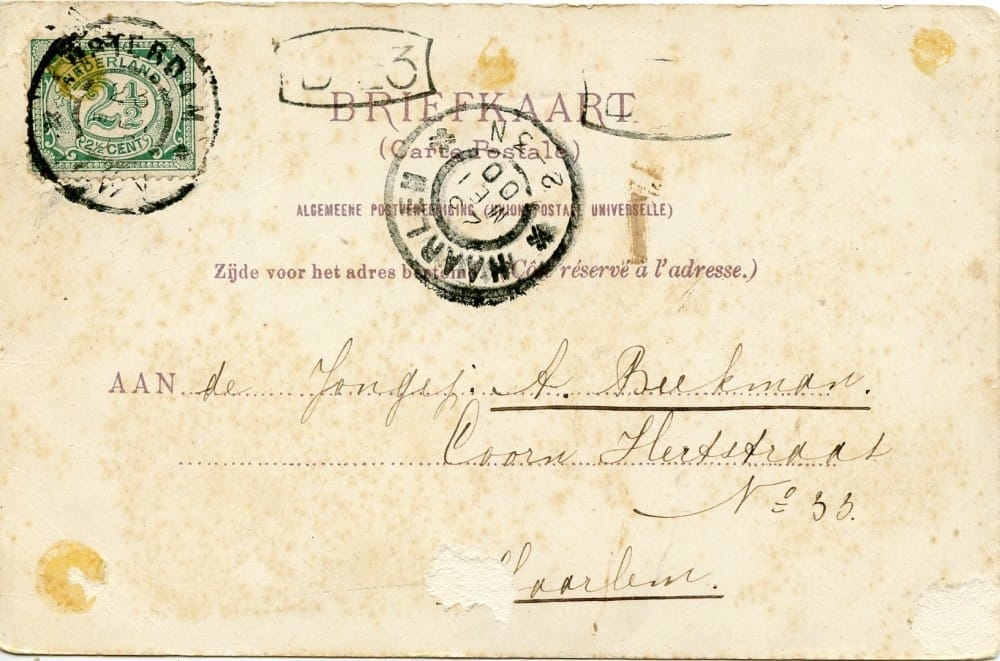 NEDERLAND
2½
2½ CENT
BRIEFKAART
(Carte Postale)
ALGEMEENE POSTVEREENIGING (UNION POSTALE UNIVERSELLE)
HAARLEM
2-3N
00
Zijde voor het adres bestemd. (Côté réservé à l'adresse.)
AAN de Jongej. A. Beekman.
Coorn Hertstraat
No 33.
Haarlem.